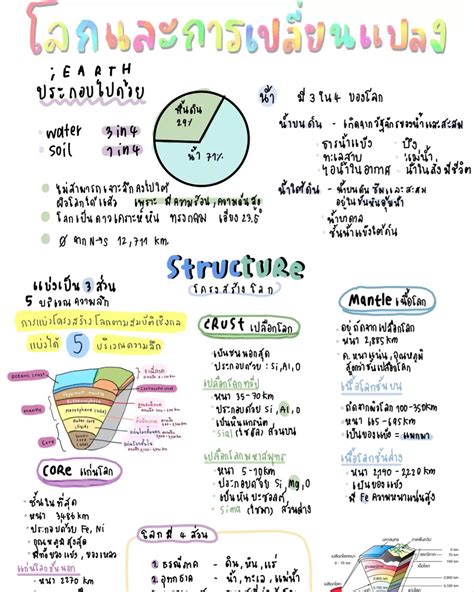 โลกและการเปลี่ยนแปลง
; EARTH
ประกอบไปด้วย
water 3 in 4
soil 1 in 4
พื้นดิน
29%
น้ำ 71%
น้ำ มี 3 ใน 4 ของโลก
น้ำบนดิน - เกิดจากวัฏจักรของน้ำและสะสม
ธารน้ำแข็ง
บึง
ทะเลสาบ
แม่น้ำ
ไอน้ำในอากาศ
น้ำในสิ่งมีชีวิต
น้ำใต้ดิน - น้ำบนดินซึมและสะสม
อยู่ในชั้นหินอุ้มน้ำ
น้ำบาดาล
ชั้นน้ำแข็งใต้ดิน
ไม่สามารถเจาะลึกลงไปใต้
ผิวโลกได้แล้ว เพราะ มีความร้อน, ความดันสูง
โลกเป็นดาวเคราะห์หิน ทรงกลม เอียง 23.5°
Ø จาก N→S 12,711 km.
Structure
โครงสร้างโลก
แบ่งเป็น 3 ส่วน
5 บริเวณความลึก
การแบ่งโครงสร้างโลกตามสมบัติเชิงกล
แบ่งได้ 5 บริเวณความลึก
OCEANIC CRUST
Continental crust
Mantle
Core
CRUST เปลือกโลก
เป็นชั้นนอกสุด
ประกอบด้วย : Si, Al, O
เปลือกโลกทวีป
หนา 35-70 km
ประกอบด้วย Si, Al, O
เป็นหินแกรนิต
sial (ไซอัล) ส่วนบน
เปลือกโลกมหาสมุทร
หนา 5-10 km
ประกอบด้วย Si, Mg, O
เป็นหินบะซอลต์
sima (ไซมา) ส่วนล่าง
Mantle เนื้อโลก
อยู่ถัดจากเปลือกโลก
หนา 2,885 km.
ค. หนาแน่น, อุณหภูมิ
สูงกว่าชั้นเปลือกโลก
เนื้อโลกชั้นบน
ถัดจากผิวโลก 100-350 km
หนา 665-695 km
เป็นของแข็ง = แมกมา
เนื้อโลกชั้นล่าง
หนา 2,190 - 2220 km
มี Fe ความหนาแน่นสูง
CORE แก่นโลก
ชั้นในที่สุด
หนา 3486 km
ประกอบด้วย Fe, Ni
อุณหภูมิสูงสุด
มีทั้งของแข็ง, ของเหลว
แก่นโลกชั้นนอก
หนา 2270 km
โลกมี 4 ส่วน
1 ธรณีภาค - ดิน, หิน, แร่
2 อุทกภาค - น้ำ, ทะเล, แม่น้ำ